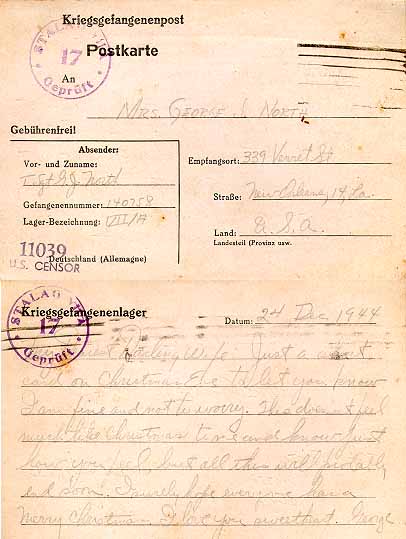 Kriegsgefangenenpost
STALAG VIIA
17
Geprüft
Postkarte
An
MRS. GEORGE J. NORTH
Gebührenfrei!
Absender:
Vor- und Zuname:
T/Sgt G.J. North
Gefangenennummer: 140758
Lager-Bezeichnung: VII/A
Deutschland (Allemagne)
11039
U.S. CENSOR
Empfangsort: 339 Verret St
Straße: New Orleans, 14, La.
Land: U.S.A.
Landesteil (Provinz usw.
Kriegsgefangenenlager
STALAG VIIA
17
Geprüft
Datum: 24 Dec 1944
Darling Wife: Just a
card on Christmas Eve to let you know
I am fine and not to worry. This doesn't feel
much like Christmas time and know just
how you feel, but all this will probably
end soon. I surely hope everyone has a
Merry Christmas. I love you sweetheart. George